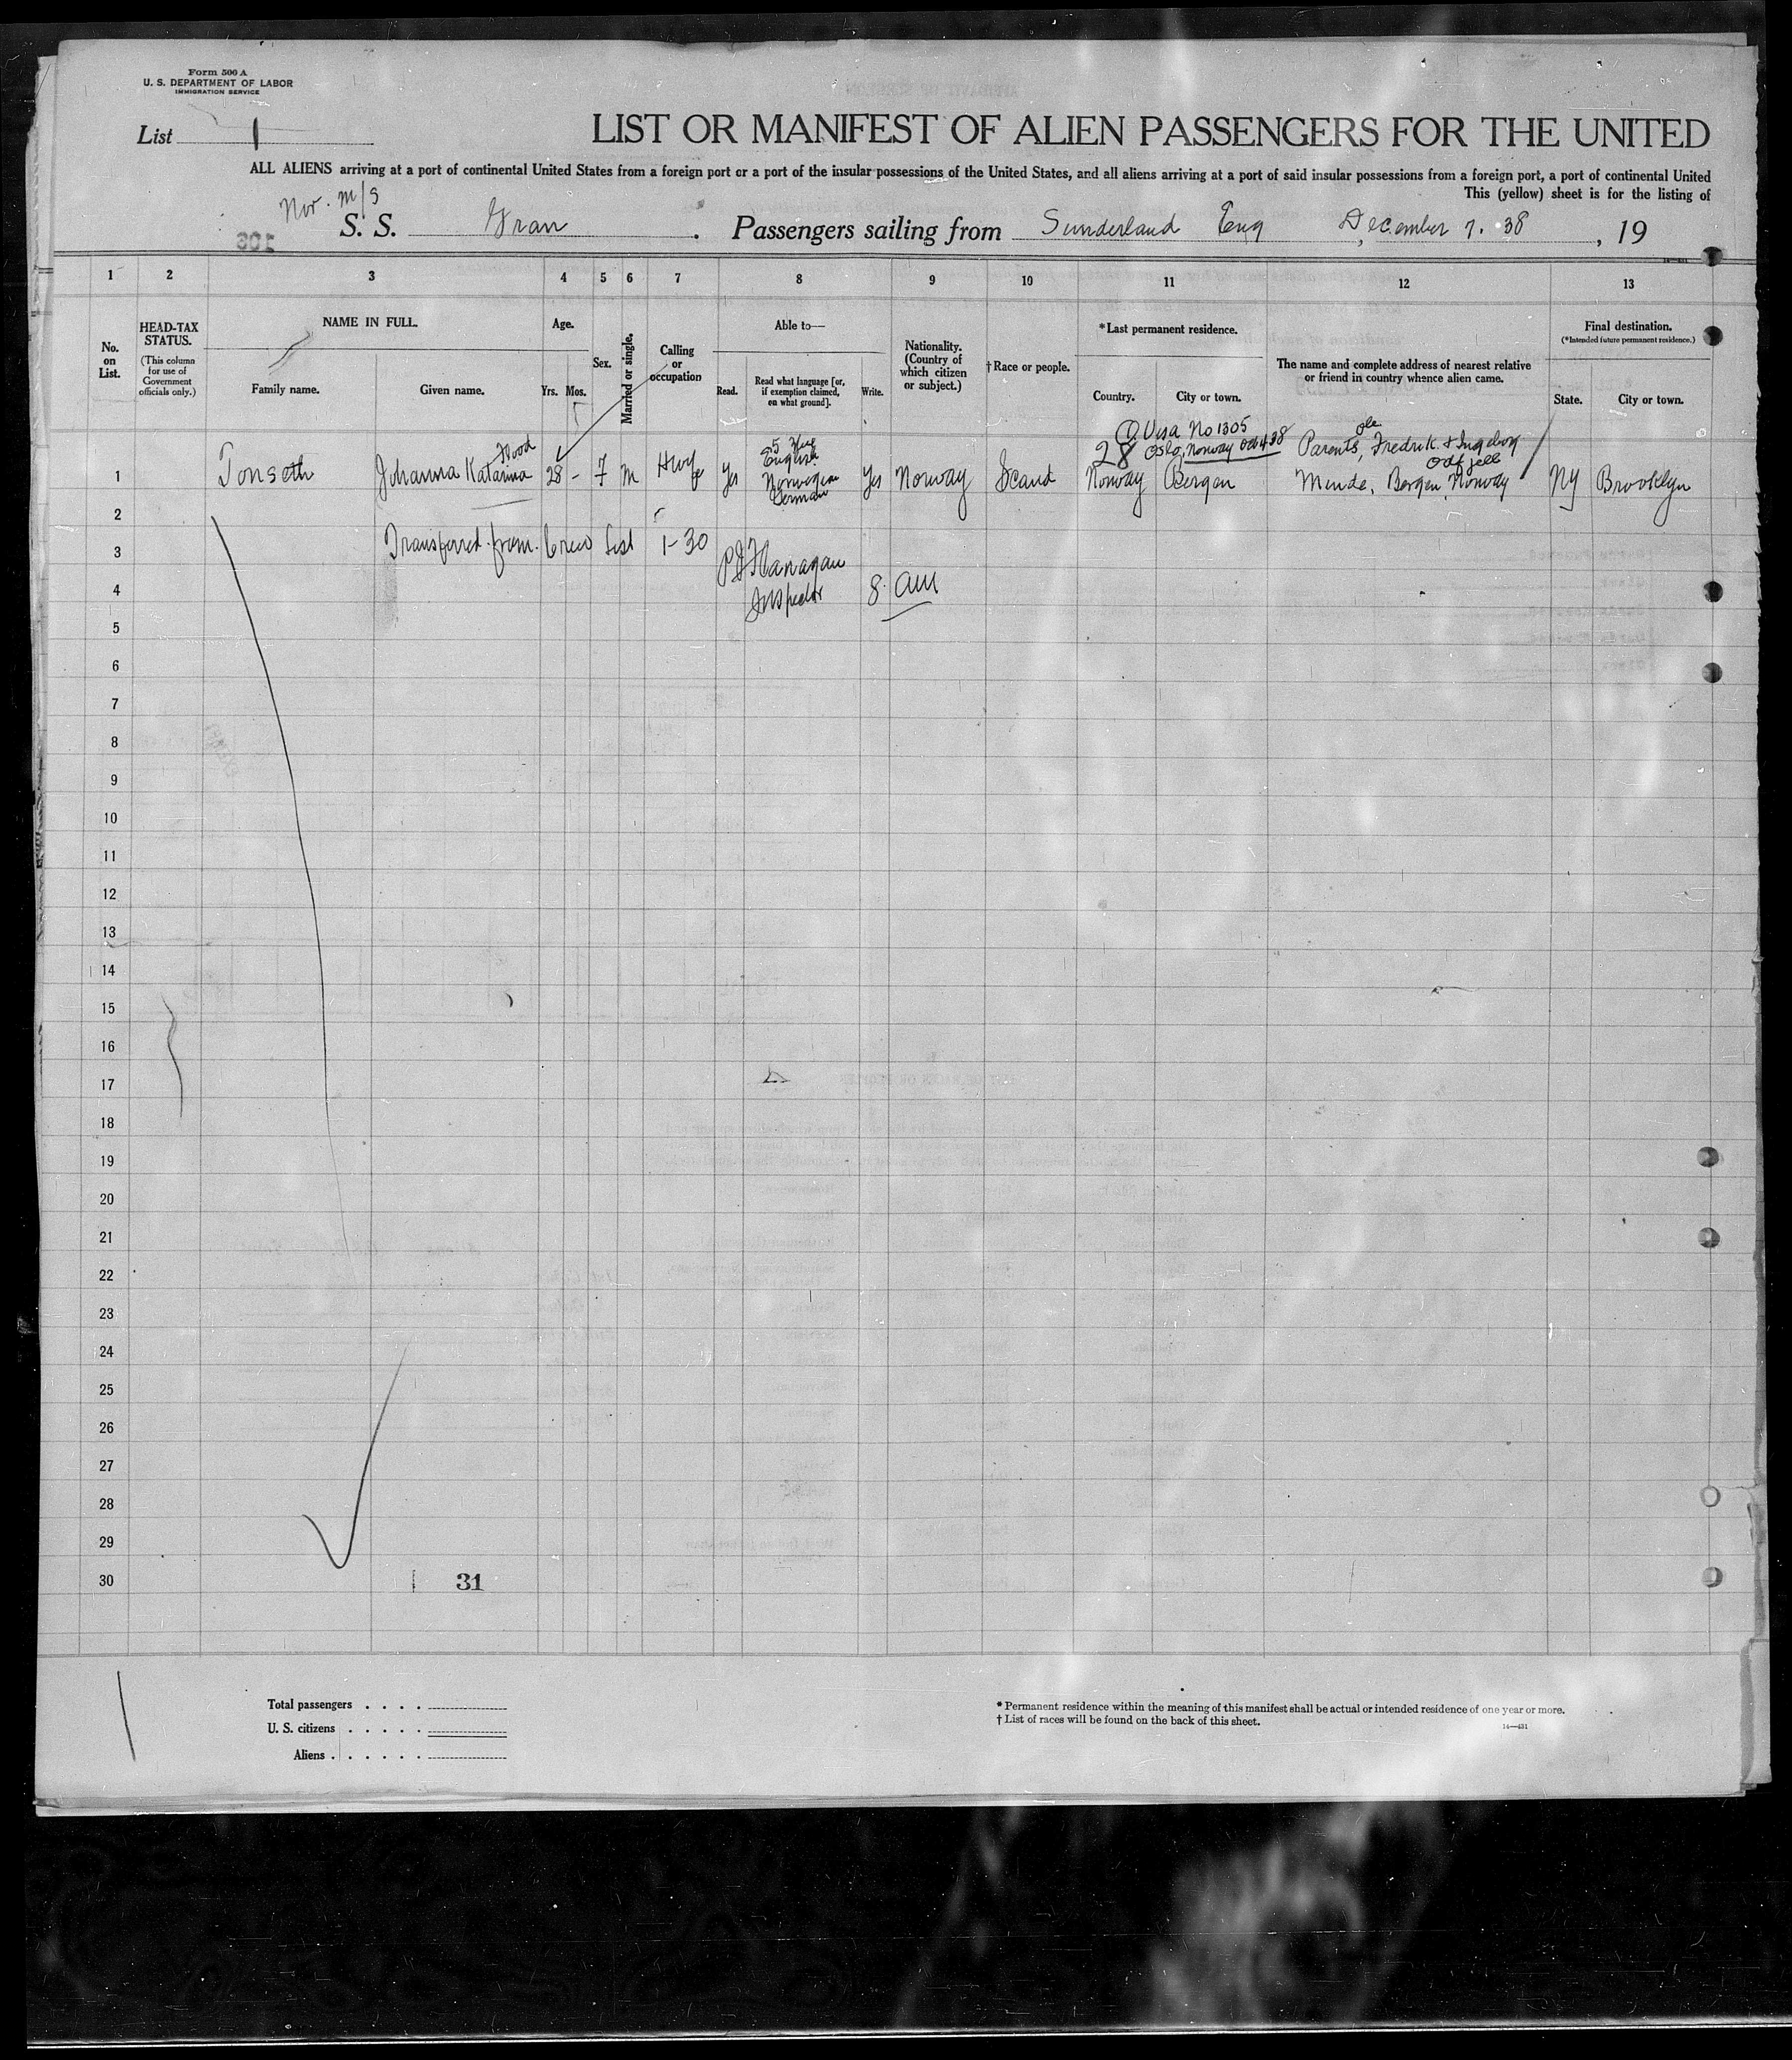 Form 500 A
U. S. DEPARTMENT OF LABOR
IMMIGRATION SERVICE
List 1
LIST OR MANIFEST OF ALIEN PASSENGERS FOR THE UNITED
ALL ALIENS arriving at a port of continental United States from a foreign port or a port of the insular possessions of the United States, and all aliens arriving at a port of said insular possessions from a foreign port, a port of continental United
This (yellow) sheet is for the listing of
Nor. m/s
S. S. Gran . Passengers sailing from Sunderland Eng December 7. 38 , 19
1 2 3 4 5 6 7 8 9 10 11 12 13
No. on List.
HEAD-TAX STATUS.
(This column for use of Government officials only.)
NAME IN FULL.
Family name. Given name.
Age.
Yrs. Mos.
Sex.
Married or single.
Calling or occupation
Able to—
Read. Read what language [or, if exemption claimed, on what ground]. Write.
Nationality. (Country of which citizen or subject.)
†Race or people.
*Last permanent residence.
Country. City or town.
The name and complete address of nearest relative or friend in country whence alien came.
Final destination.
(*Intended future permanent residence.)
State. City or town.
Q Visa No 1305
28 Oslo, Norway Oct 4 38
1 Tonseth Johanna Katarina 28 - F m Hwfe Yes English Norwegian German Yes Norway Scand Norway Bergen Parents, Ole Fredrik & Ingeborg Odfjell Minde, Bergen, Norway NY Brooklyn
2
3 Transferred from Crew List 1-30
P J Flanagan
4 Inspector 8 am
5
6
7
8
9
10
11
12
13
14
15
16
17
18
19
20
21
22
23
24
25
26
27
28
29
30 31
Total passengers . . . .
U. S. citizens . . . . .
Aliens . . . . . .
* Permanent residence within the meaning of this manifest shall be actual or intended residence of one year or more.
† List of races will be found on the back of this sheet.
14—431